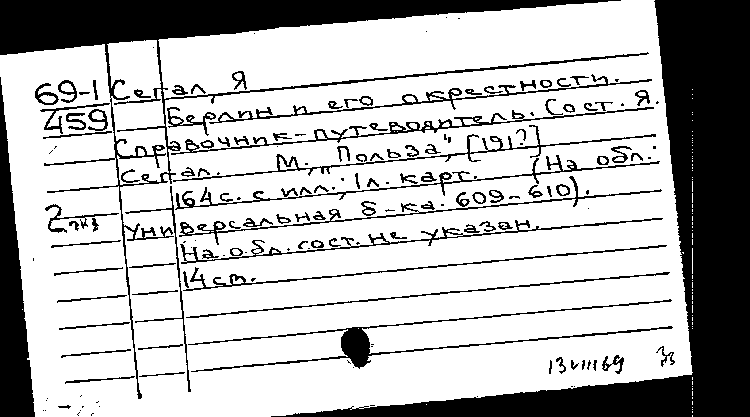 69-1 Сегал, Я
459 Берлин и его окрестности.
Справочник-путеводитель. Сост. Я.
Сегал. М., "Польза", [191?]
164 с. с илл.; 1 л. карт. (На обл.:
2 экз Универсальная б-ка. 609-610).
На обл. сост. не указан.
14 см.
13 VIII 69